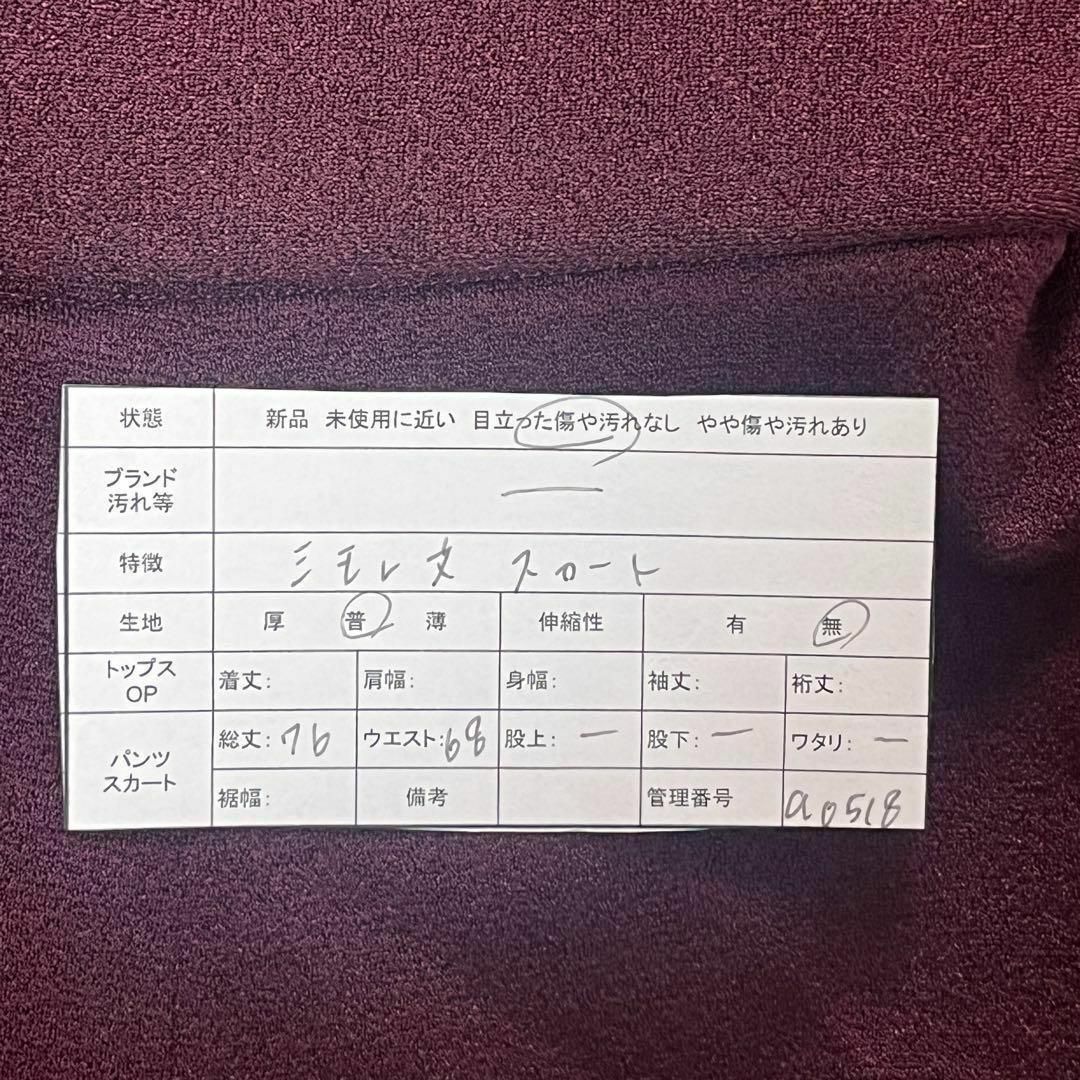 状態 新品 未使用に近い 目立った傷や汚れなし やや傷や汚れあり
ブランド
汚れ等 ー
特徴 ミモレ丈 スカート
生地 厚 普 薄 伸縮性 有 無
トップス
OP 着丈: 肩幅: 身幅: 袖丈: 裄丈:
パンツ
スカート 総丈:76 ウエスト:68 股上:ー 股下:ー ワタリ:ー
裾幅: 備考 管理番号 a0518